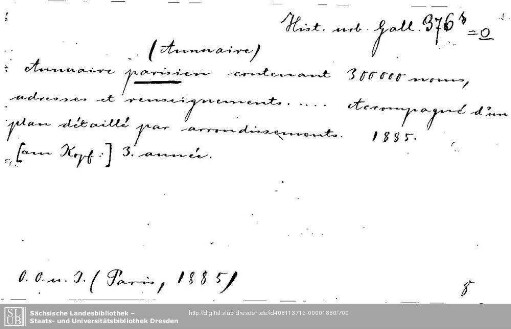 Hist. urb. Gall. 376 s = O
(Annuaire)
Annuaire parisien contenant 300000 noms,
adresses et renseignements..... Accompagné d'un
plan détaillé par arrondissements. 1885.
[am Kopf:] 3. année.
O. O. u. J. (Paris, 1885) 8
Sächsische Landesbibliothek –
Staats- und Universitätsbibliothek Dresden